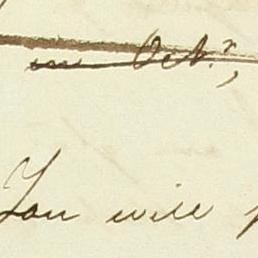 in Octr,
You will